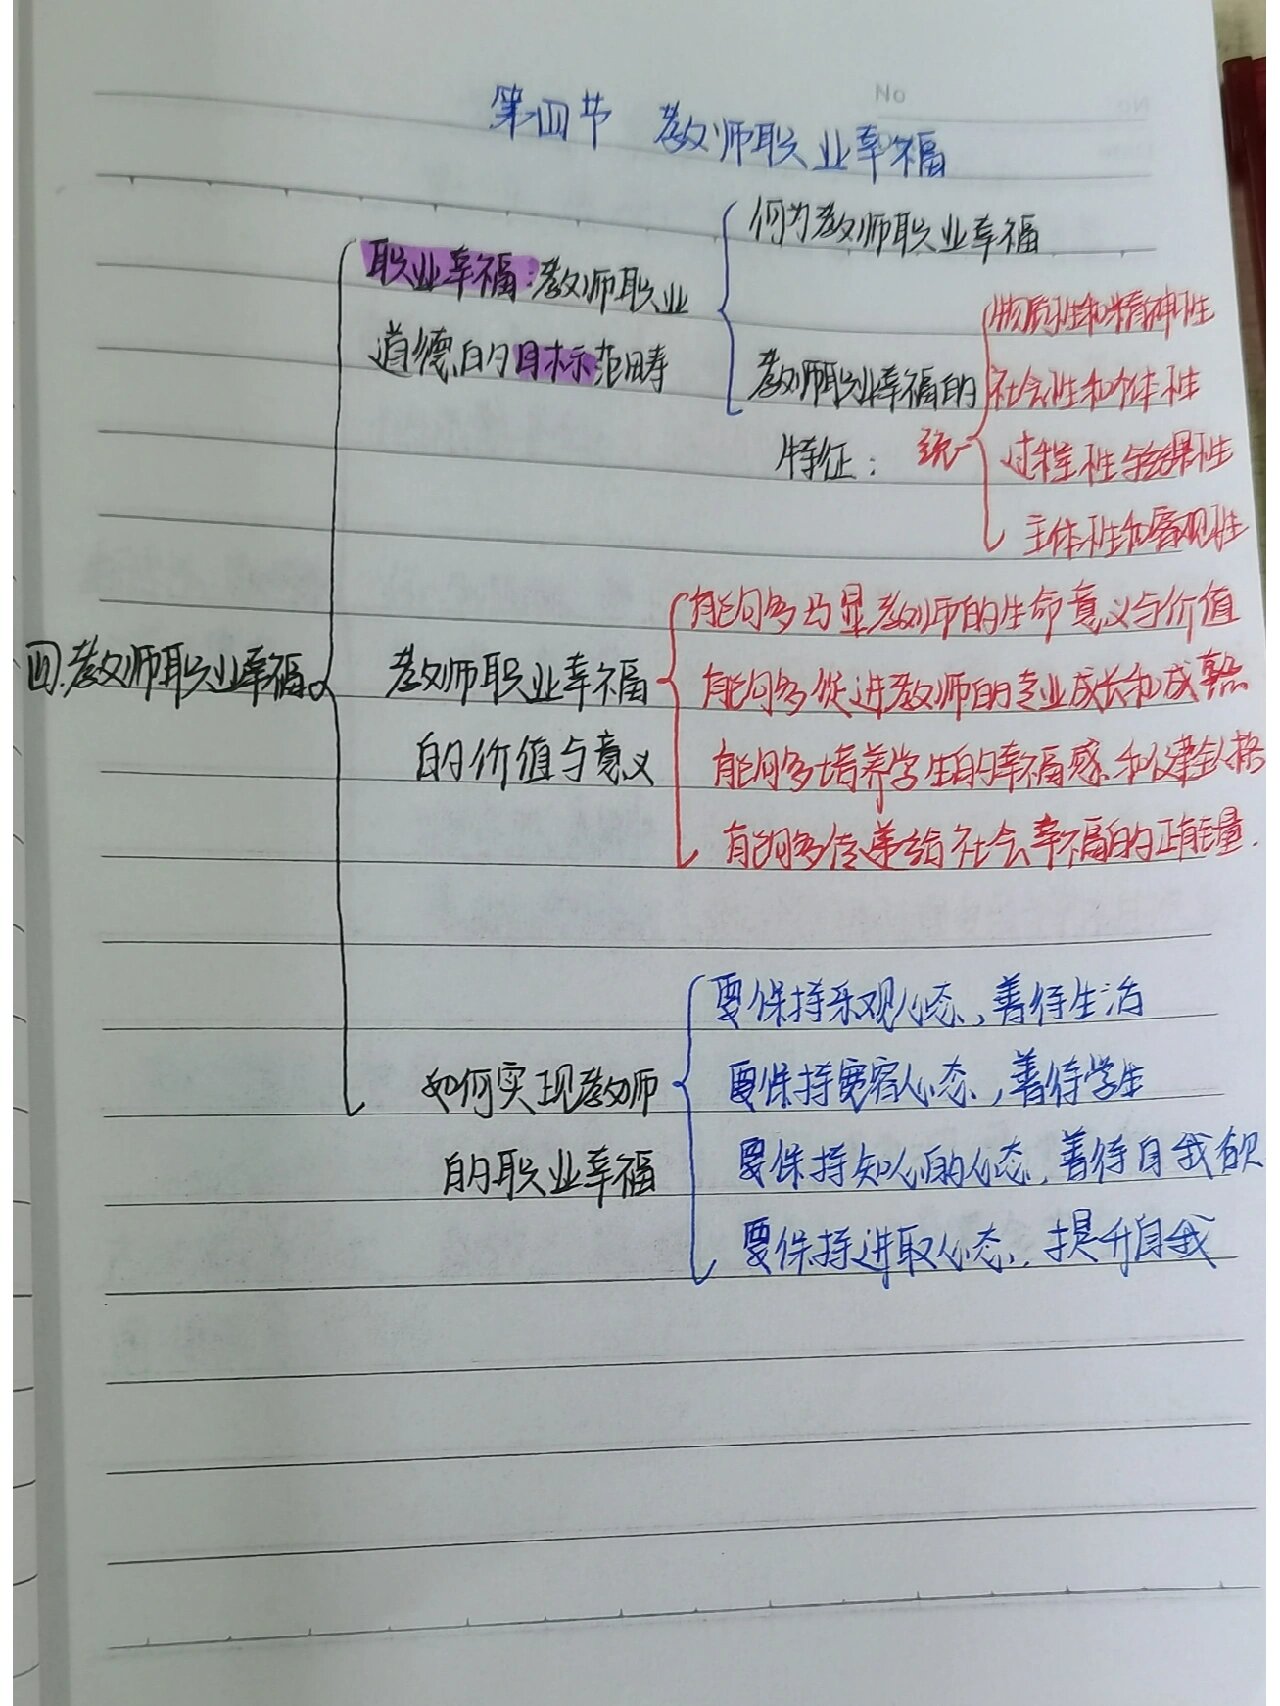 No
第四节 教师职业幸福
何为教师职业幸福
职业幸福:教师职业
道德的目标范畴
教师职业幸福的
特征: 统一
物质性和精神性
社会性和个体性
过程性与结果性
主体性和客观性
四.教师职业幸福
教师职业幸福
的价值与意义
能够多凸显教师的生命意义与价值
能够多促进教师的专业成长和成熟
能够多培养学生的幸福感和健全人格
能够多传递给社会幸福的正能量.
如何实现教师
的职业幸福
要保持乐观心态,善待生活
要保持宽容心态,善待学生
要保持知心的心态,善待自我
要保持进取心态,提升自我